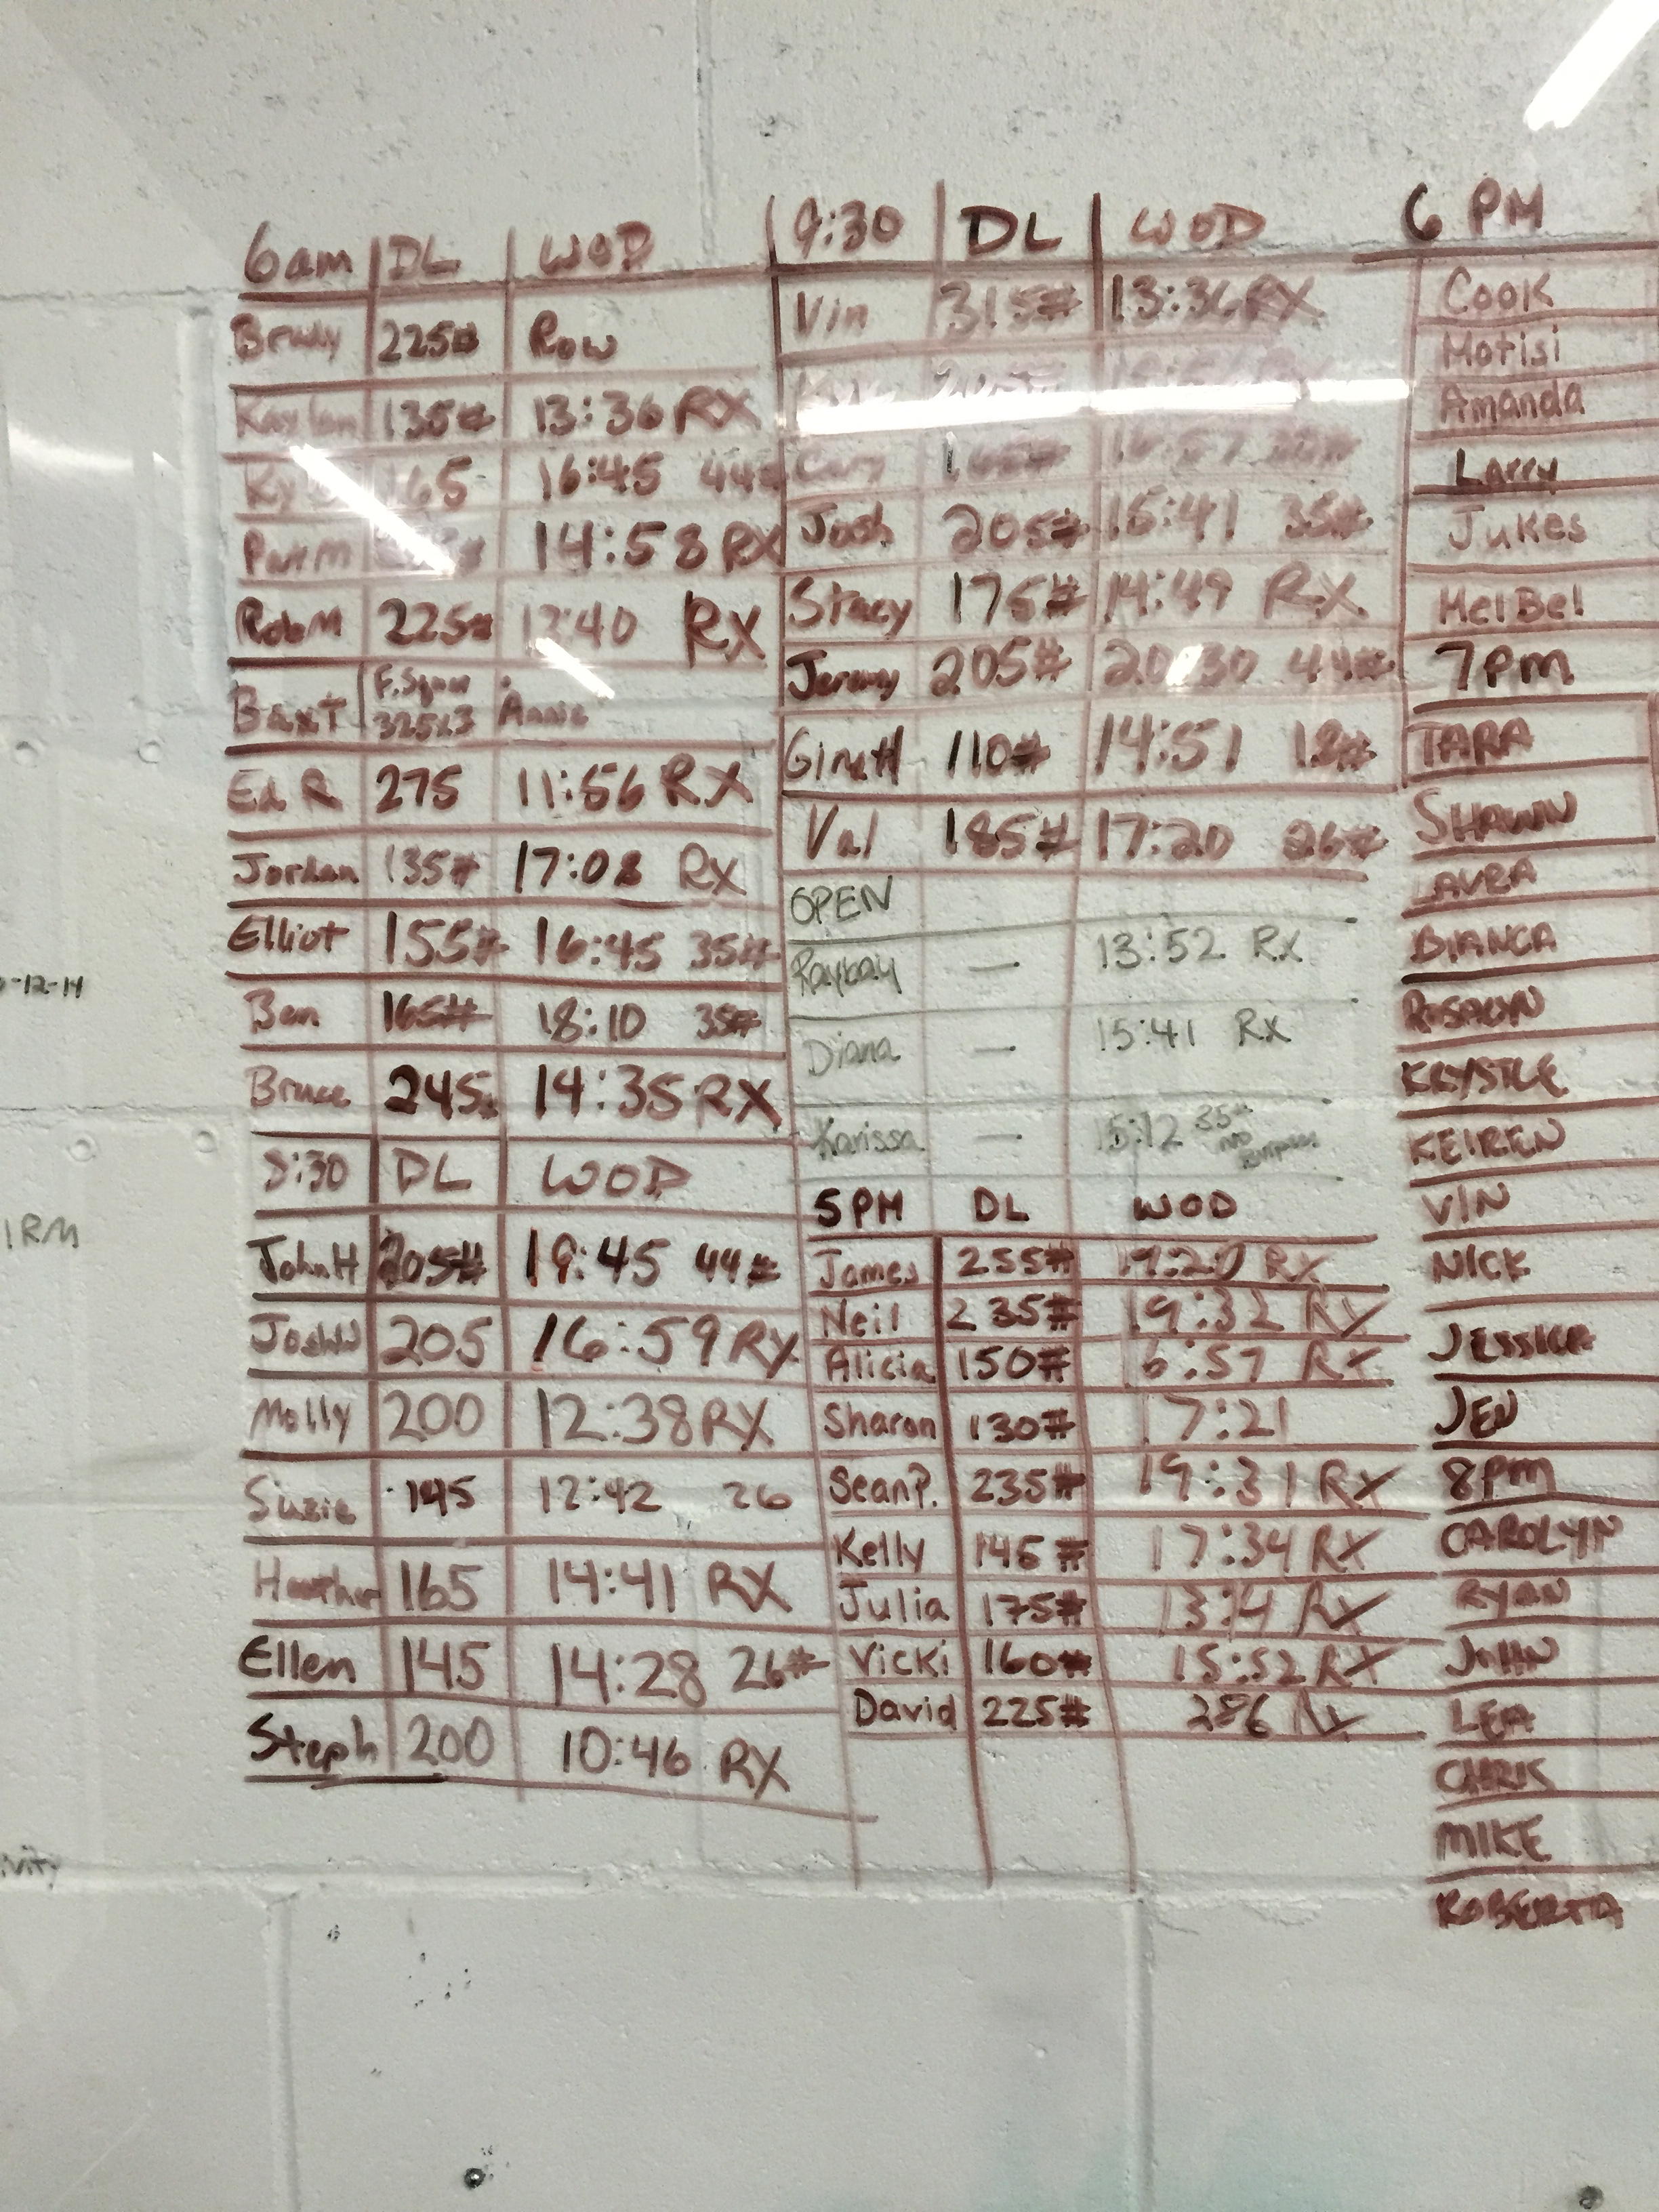 6am DL WOD
Brudy 225# Row
Kaylan 135# 13:36 RX
Ky 165 16:45 44#
Parm 14:58 RX
RobM 225# 12:40 RX
BaxT F.Squat 325x3 Annie
Ed R 275 11:56 RX
Jordan 135# 17:08 RX
Elliot 155# 16:45 35#
Ben 165# 18:10 35#
Bruce 245# 14:35 RX
8:30 DL WOD
JohnH 205# 19:45 44#
JoshW 205 16:59 RX
Molly 200 12:38 RX
Suzie 145 12:42 26
Heather 165 14:41 RX
Ellen 145 14:28 26#
Steph 200 10:46 RX
9:30 DL WOD
Vin 315# 13:36 RX
Cary 165# 16:57 35#
Josh 205# 15:41 35#
Stacy 175# 14:49 RX
Jeremy 205# 20:30 44#
GinaH 110# 14:51 18#
Val 185# 17:20 26#
OPEN
Raybay — 13:52 Rx
Diana — 15:41 Rx
Karissa — 15:12 35# no
5PM DL WOD
James 255# 19:20 Rx
Neil 235# 19:32 Rx
Alicia 150# 16:57 Rx
Sharon 130# 17:21
SeanP. 235# 19:31 Rx
Kelly 145# 17:34 Rx
Julia 175# 13:14 Rx
Vicki 160# 15:52 RX
David 225# Rx
6 PM
Cook
Motisi
Amanda
Larry
Jukes
MelBel
7PM
TARA
SHAWN
LAURA
BIANCA
ROSALYN
KRYSTLE
KEIREN
VIN
NICK
JESSICA
JEN
8PM
CAROLYN
RYAN
JOHN
LEA
CHRIS
MIKE
ROBERTA
-12-14
1RM
ivity